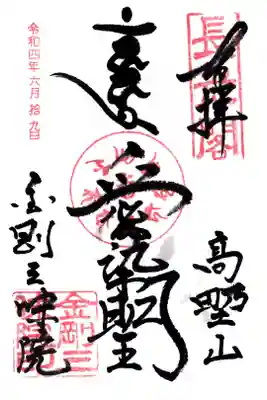 奉拝
高野山
愛染明王
金剛三昧院
金剛三
令和四年六月拾九日